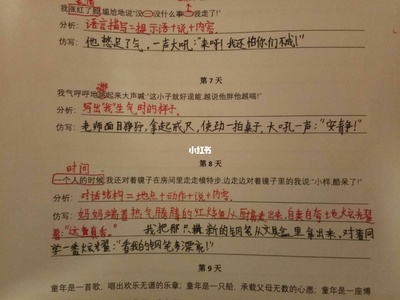 我涨红了脸尴尬地说“没一没什么事一我走了！”
分析：语言描写=提示语+说+内容.
仿写：他憋足了气，一声大吼：“来呀！我还怕你们不成！”
第7天
我气呼呼地站起来大声喊“这小子就好逞能,越说他胖他越喘！”
分析：写出我生气时的样子.
仿写：老师面目狰狞，拿起戒尺，使劲一拍桌子，大吼一声：“安静！”
小红书
第8天
时间
一个人的时候我还对着镜子在房间里走走模特步,边走边对着镜子里的我说“小样,酷呆了！”
分析：对话结构=地点+动作+说+内容.
仿写：妈妈端着热气腾腾的红烧鱼从厨房走出来,自卖自夸地大炫耀
着：“这鱼真香。” 我把那只崭新的钢笔从文具盒里拿出来，对着同
学一番炫耀：“看我的钢笔多漂亮！”
第9天
童年是一首歌，唱出欢乐无谱的乐章；童年是一只船，承载父母无数的心愿；童年是一座博